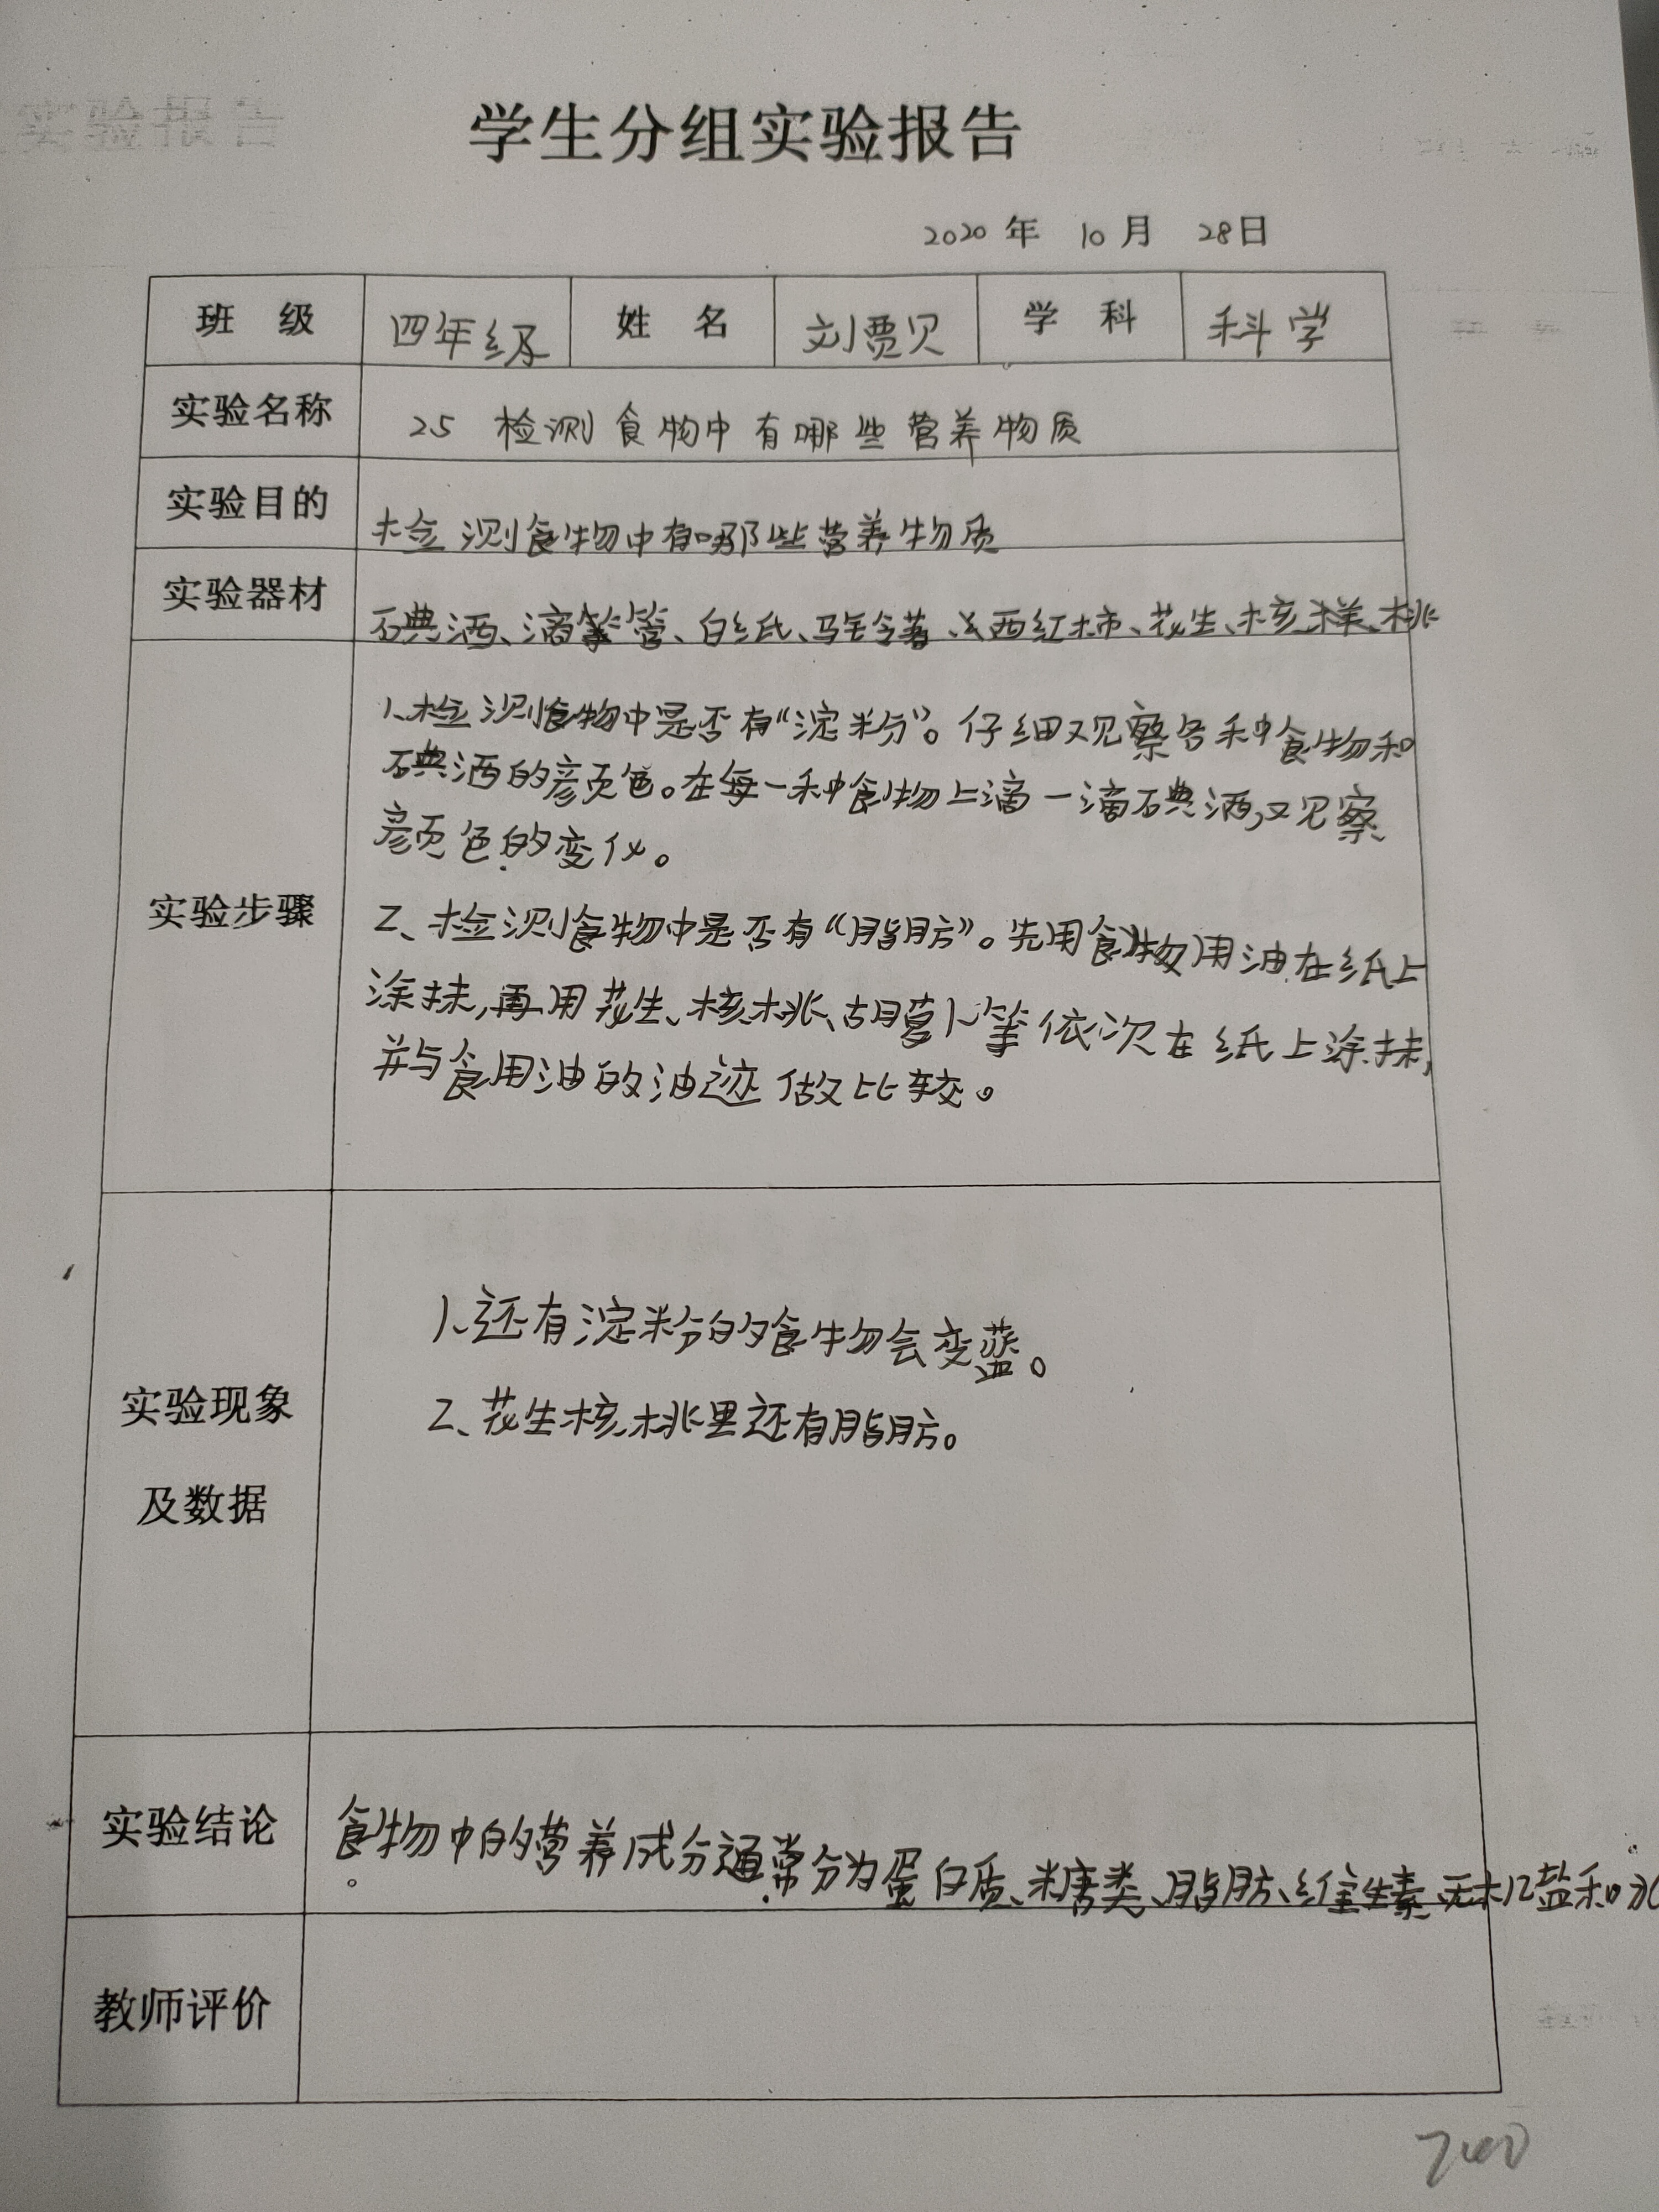 学生分组实验报告
2020 年 10 月 28日
班 级 四年级 姓 名 刘贾贝 学 科 科学
实验名称 25 检测食物中有哪些营养物质
实验目的 检测食物中有哪些营养物质
实验器材 碘酒、滴管、白纸、马铃薯、西红柿、花生、核桃
实验步骤
1、检测食物中是否有“淀粉”。仔细观察各种食物和
碘酒的颜色。在每一种食物上滴一滴碘酒,观察
颜色的变化。
2、检测食物中是否有“脂肪”。先用食物用油在纸上
涂抹,再用花生、核桃、胡萝卜等依次在纸上涂抹,
并与食用油的油迹做比较。
实验现象
及数据
1、还有淀粉的食物会变蓝。
2、花生核桃里还有脂肪。
实验结论 食物中的营养成分通常分为蛋白质、糖类、脂肪、维生素、无机盐和水
。
教师评价